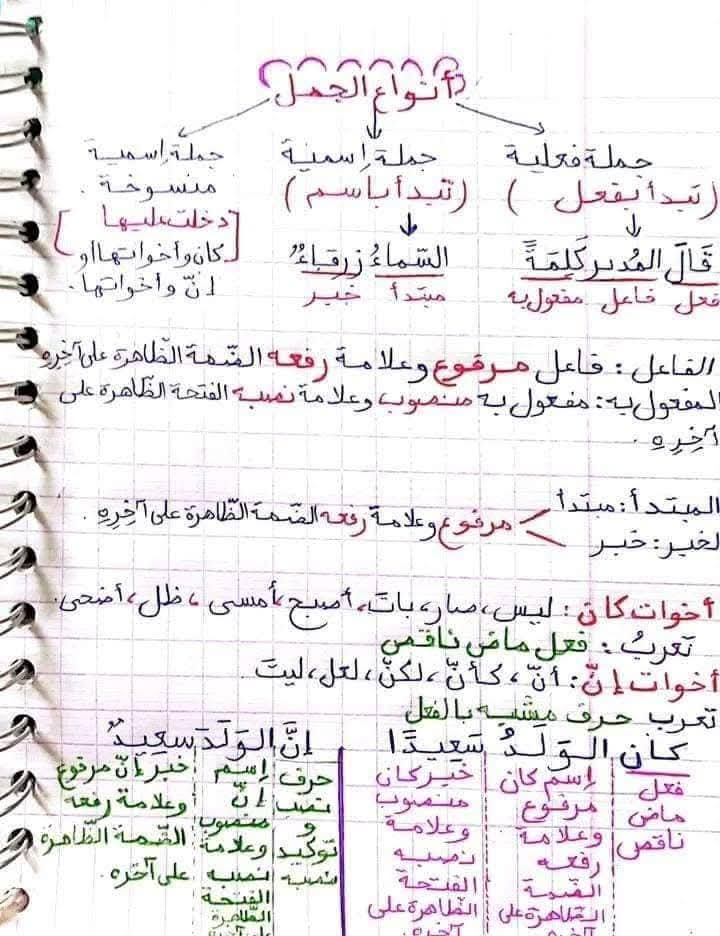 أنواع الجمل
جملة فعلية
(تبدأ بفعل)
قَالَ المُدير كَلِمَةً
فعل فاعل مفعول به
جملة إسمية
(تبدأ باسم)
السّماءُ زرقاءُ
مبتدأ خبر
جملة إسمية
منسوخة.
[دخلت عليها
كان وأخواتها أو]
إنّ وأخواتها.
الفاعل: فاعل مرفوع وعلامة رفعه الضّمة الظّاهرة على آخِرِهِ
المفعول به: مفعول به منصوب وعلامة نصبه الفتحة الظّاهرة على
آخِرِهِ.
المبتدأ: مبتدأ
لخبر: خبر
مرفوع وعلامة رفعه الضّمة الظّاهرة على آخِرِهِ.
أخوات كان: ليس، صار، باتَ، أصبح، أمسى، ظل، أضحى.
تعربُ: فعل ماض ناقص
أخوات إنّ: أنّ، كأنّ، لكنّ، لعل، ليتَ.
تعرب حرف مشبه بالفعل
كان الوَلَدُ سَعِيدًا
فعل
ماض
ناقص
إسم كان
مرفوع
وعلامة
رفعه
الضّمة
الظّاهرة على
آخره
خبر كان
منصوب
وعلامة
نصبه
الفتحة
الظّاهرة على
آخره
إنَّ الوَلَدَ سعِيدٌ
حرف
نصب
و
توكيد
نصبه
إسم
إنّ
منصوب
وعلامة
نصبه
الفتحة
الظّاهرة
على آخره
خبر إنّ مرفوع
وعلامة رفعه
الضّمة الظّاهرة
على آخره.